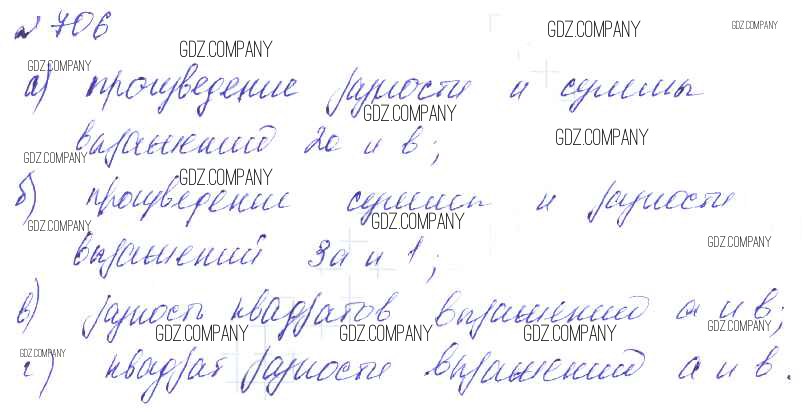 № 706
GDZ.COMPANY GDZ.COMPANY GDZ.COMPANY
GDZ.COMPANY
а) произведение разности и суммы
GDZ.COMPANY
выражений 2а и в;
GDZ.COMPANY GDZ.COMPANY
GDZ.COMPANY
б) произведение суммы и разности
GDZ.COMPANY GDZ.COMPANY
выражений 3а и 1;
GDZ.COMPANY
в) разность квадратов выражений а и в;
GDZ.COMPANY GDZ.COMPANY GDZ.COMPANY GDZ.COMPANY
GDZ.COMPANY
г) квадрат разности выражений а и в.